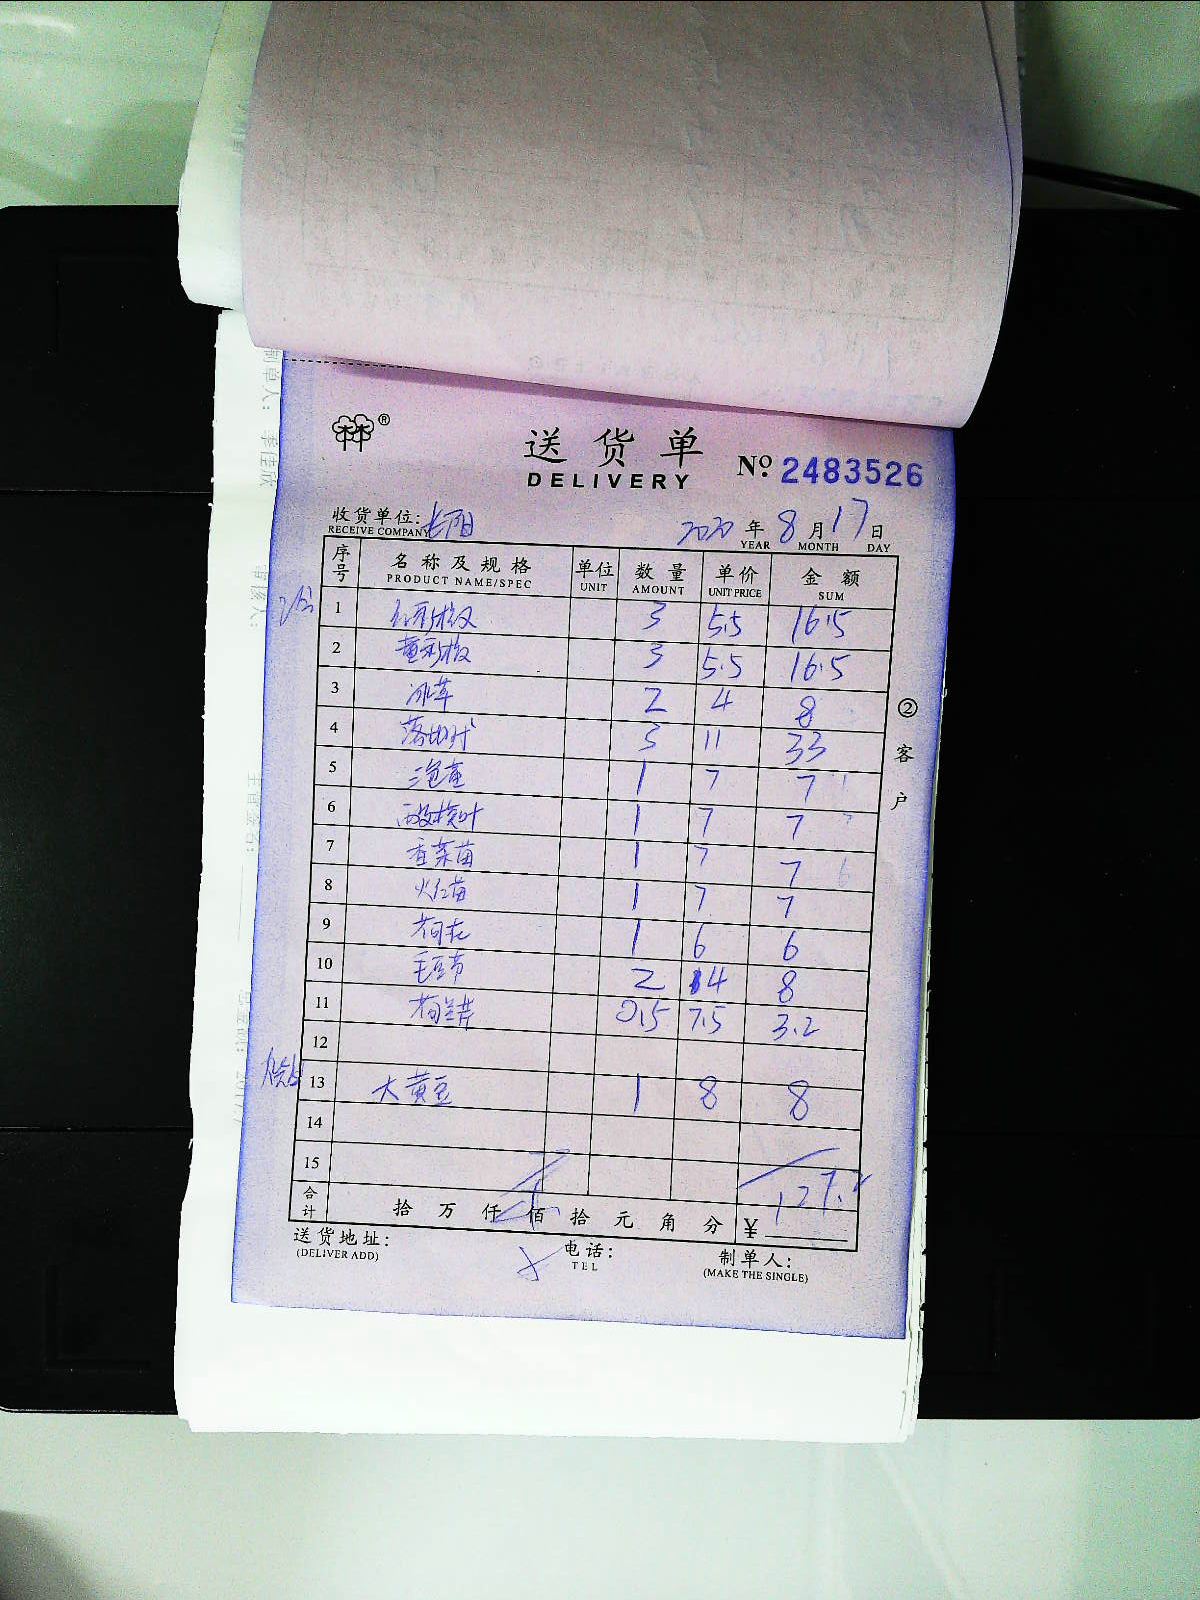 送货单
DELIVERY
№ 2483526
收货单位: 长阳
RECEIVE COMPANY
2020 年 8 月 17 日
YEAR MONTH DAY
序号 名称及规格 单位 数量 单价 金额
PRODUCT NAME/SPEC UNIT AMOUNT UNIT PRICE SUM
1 3 5.5 16.5
2 3 5.5 16.5
3 冰草 2 4 8
4 3 11 33
5 三色堇 1 7 7
6 1 7 7
7 香菜苗 1 7 7
8 火红苗 1 7 7
9 荷花 1 6 6
10 毛豆节 2 4 8
11 荷兰芹 0.5 7.5 3.2
12
13 大黄豆 1 8 8
14
15
合计 拾 万 仟 佰 拾 元 角 分 ¥ 127.2
送货地址: 电话: 制单人:
(DELIVER ADD) TEL (MAKE THE SINGLE)
② 客户
制单人: 李佳欣
审核人: